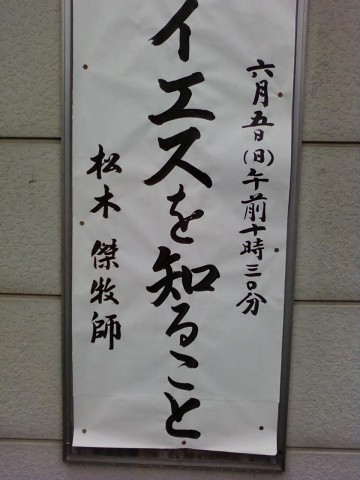 六月五日(日)午前十時三〇分
イエスを知ること
松木 傑牧師